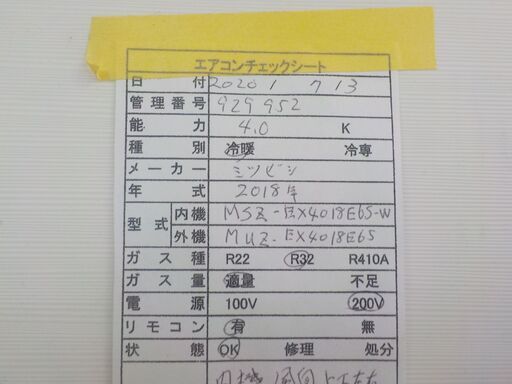 エアコンチェックシート
日 付 2020 / 7 13
管理番号 929952
能 力 4.0 K
種 別 冷暖 冷専
メーカー ミツビシ
年 式 2018年
型式 内機 MSZ-EX4018E6S-W
外機 MUZ-EX4018E6S
ガス種 R22 R32 R410A
ガス量 適量 不足
電 源 100V 200V
リモコン 有 無
状 態 OK 修理 処分
内機 風向上下左右